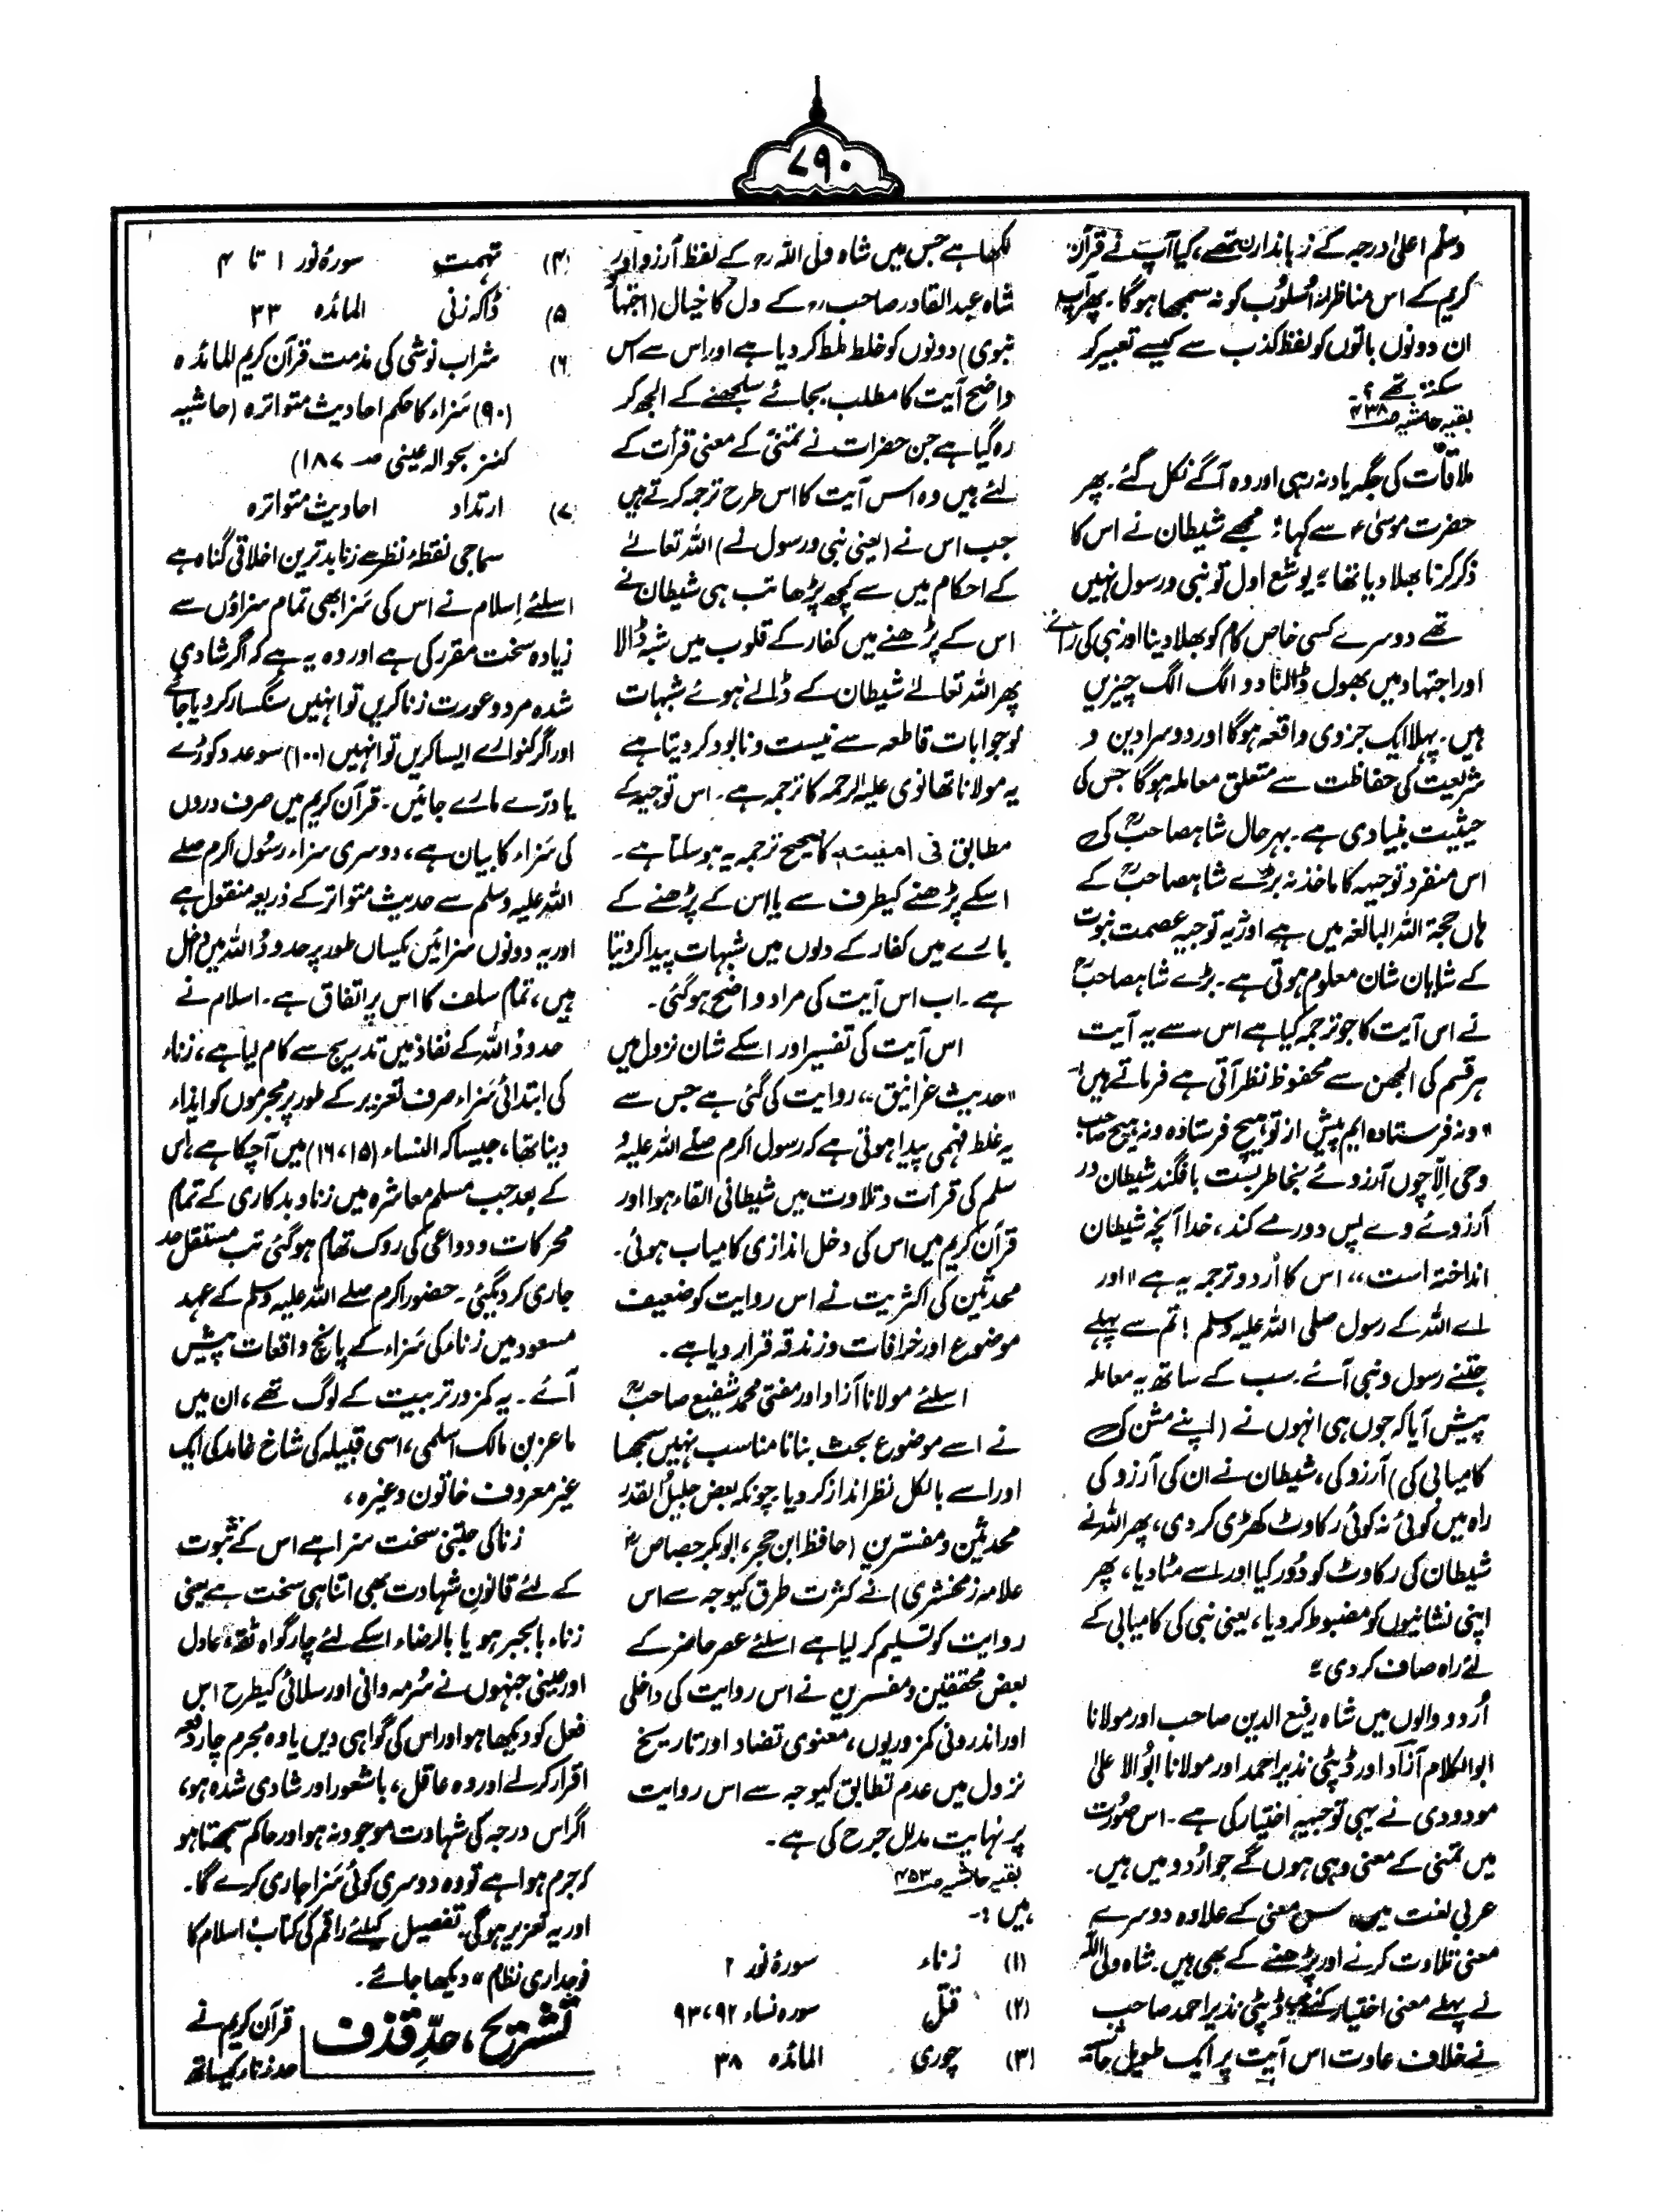 ۷۹۰
وسلم اعلیٰ درجہ کے زباندارن تھے، کیا آپ نے قرآن
کریم کے اس مناظرانہ اُسلوب کو نہ سمجھا ہوگا۔ پھر آپ
ان دونوں باتوں کو لفظ کذب سے کیسے تعبیر کر
سکتے تھے؟۔
بقیہ حاشیہ صـ۴۳۸
ملاقات کی جگہ یاد نہ رہی اور وہ آگے نکل گئے۔ پھر
حضرت موسیٰ ؑ سے کہا: مجھے شیطان نے اس کا
ذکر کرنا بھلا دیا تھا؛ یوشع اول تو نبی و رسول نہیں
تھے دوسرے کسی خاص کام کو بھلا دینا اور نبی کی رائے
اور اجتہاد میں بھول ڈالنا دو الگ الگ چیزیں
ہیں۔ پہلا ایک جزوی واقعہ ہوگا اور دوسرا دین و
شریعت کی حفاظت سے متعلق معاملہ ہوگا جس کی
حیثیت بنیادی ہے۔ بہر حال شاہصاحبؒ کی
اس منفرد توجیہہ کا ماخذ نہ بڑے شاہصاحبؒ کے
ہاں حجۃ اللہ البالغہ میں ہے اور یہ توجیہ عصمت نبوت
کے شایان شان معلوم ہوتی ہے۔ بڑے شاہصاحبؒ
نے اس آیت کا جو ترجمہ کیا ہے اس سے یہ آیت
ہر قسم کی الجھن سے محفوظ نظر آتی ہے فرماتے ہیں:
"ونہ فرستادہ ایم پیش از تو ہیچ فرستادہ ونہ ہیچ صاحب
وحی اِلّا چوں آرزوئے بخاطر بست بافگند شیطان در
آرزوئے وے پس دور مے کند، خدا آنچہ شیطان
انداختہ است،، اس کا اُردو ترجمہ یہ ہے "اور
اے اللہ کے رسول صلی اللہ علیہ وسلم! تم سے پہلے
جتنے رسول و نبی آئے۔ سب کے ساتھ یہ معاملہ
پیش آیا کہ جوں ہی انہوں نے (اپنے مشن کی
کامیابی کی) آرزو کی، شیطان نے ان کی آرزو کی
راہ میں کوئی نہ کوئی رکاوٹ کھڑی کر دی، پھر اللہ نے
شیطان کی رکاوٹ کو دُور کیا اور اسے مٹا دیا، پھر
اپنی نشانیوں کو مضبوط کر دیا، یعنی نبی کی کامیابی کے
لئے راہ صاف کر دی"
اُردو والوں میں شاہ رفیع الدین صاحب اور مولانا
ابوالکلام آزاد اور ڈپٹی نذیر احمد اور مولانا ابُوالا علیٰ
مودودی نے یہی توجیہہ اختیار کی ہے۔ اس صُورت
میں تمنی کے معنی وہی ہوں گے جو اُردو میں ہیں۔
عربی لغت میں اس معنی کے علاوہ دوسرے
معنی تلاوت کرنے اور پڑھنے کے بھی ہیں۔ شاہ ولی اللہ
نے پہلے معنی اختیار کئے ہیں ڈپٹی نذیر احمد صاحب
نے خلاف عادت اس آیت پر ایک طویل حاشیہ
لکھا ہے جس میں شاہ ولی اللہ رہ کے لفظ آرزو اور
شاہ عبدالقادر صاحب رہ کے دل کا خیال (اجتہاد
نبوی) دونوں کو خلط ملط کر دیا ہے اور اس سے اس
واضح آیت کا مطلب بجائے سلجھنے کے الجھ کر
رہ گیا ہے جن حضرات نے تمنیٰ کے معنی قرأت کے
لئے ہیں وہ اس آیت کا اس طرح ترجمہ کرتے ہیں
جب اس نے (یعنی نبی و رسول نے) اللہ تعالےٰ
کے احکام میں سے کچھ پڑھا تب ہی شیطان نے
اس کے پڑھنے میں کفار کے قلوب میں شبہ ڈالا
پھر اللہ تعالےٰ شیطان کے ڈالے ہوئے شبہات
کو جوابات قاطعہ سے نیست و نابود کر دیتا ہے
یہ مولانا تھانوی علیہ الرحمہ کا ترجمہ ہے۔ اس توجیہ کے
مطابق فی امنیتہ کا صحیح ترجمہ یہ ہو سکتا ہے۔
اسکے پڑھنے کیطرف سے یا اس کے پڑھنے کے
بارے میں کفار کے دلوں میں شبہات پیدا کر دیتا
ہے۔ اب اس آیت کی مراد واضح ہوگئی۔
اس آیت کی تفسیر اور اسکے شان نزول میں
"حدیث غرانیق،، روایت کی گئی ہے جس سے
یہ غلط فہمی پیدا ہوتی ہے کہ رسول اکرم صلے اللہ علیہ و
سلم کی قرأت و تلاوت میں شیطانی القاء ہوا اور
قرآن کریم میں اس کی دخل اندازی کامیاب ہوئی۔
محدثین کی اکثریت نے اس روایت کو ضعیف
موضوع اور خرافات و زندقہ قرار دیا ہے۔
اسلئے مولانا آزاد اور مفتی محمد شفیع صاحبؒ
نے اسے موضوع بحث بنانا مناسب نہیں سمجھا
اور اسے بالکل نظر انداز کر دیا۔ چونکہ بعض جلیل القدر
محدثین و مفسّرین (حافظ ابن حجر، ابوبکر جصاص رح
علامہ زمخشری) نے کثرت طرق کیوجہ سے اس
روایت کو تسلیم کر لیا ہے اسلئے عصر حاضر کے
بعض محققین و مفسرین نے اس روایت کی داخلی
اور اندرونی کمزوریوں، معنوی تضاد اور تاریخ
نزول میں عدم تطابق کیوجہ سے اس روایت
پر نہایت مدلل جرح کی ہے۔
بقیہ حاشیہ صـ۴۵۳
ہیں:۔
(۱) زناء سورۂ نور ۲
(۲) قتل سورہ نساء ۹۲، ۹۳
(۳) چوری المائدہ ۳۸
(۴) تہمت سورۂ نور ۱ تا ۴
(۵ ڈاکہ زنی المائدہ ۳۳
(۶ شراب نوشی کی مذمت قرآن کریم المائدہ
(۹۰) سَزاء کا حکم احادیث متواترہ (حاشیہ
کنز بحوالہ عینی صـ ۱۸۷)
(۷ ارتداد احادیث متواترہ
سماجی نقطۂ نظر سے زنا بدترین اخلاقی گناہ ہے
اسلئے اِسلام نے اس کی سَزا بھی تمام سزاؤں سے
زیادہ سخت مقرر کی ہے اور وہ یہ ہے کہ اگر شادی
شدہ مرد و عورت زنا کریں تو انہیں سنگسار کر دیا جائے
اور اگر کنوارے ایسا کریں تو انہیں (۱۰۰) سو عدد کوڑے
یا درّے مارے جائیں۔ قرآن کریم میں صرف دروں
کی سَزاء کا بیان ہے، دوسری سزاء رسُول اکرم صلے
اللہ علیہ وسلم سے حدیث متواتر کے ذریعہ منقول ہے
اور یہ دونوں سزائیں یکساں طور پر حدودُ اللہ میں دخل
ہیں، تمام سلف کا اس پر اتفاق ہے۔ اسلام نے
حدودُ اللہ کے نفاذ میں تدریج سے کام لیا ہے، زناء
کی ابتدائی سَزاء صرف تعزیر کے طور پر مجرموں کو ایذاء
دینا تھا، جیسا کہ النساء (۱۵، ۱۶) میں آچکا ہے، اس
کے بعد جب مسلم معاشرہ میں زنا و بدکاری کے تمام
محرکات و دواعی کی روک تھام ہوگئی تب مستقل حد
جاری کر دیگئی۔ حضور اکرم صلے اللہ علیہ وسلم کے عہد
مسعود میں زناء کی سَزاء کے پانچ واقعات پیش
آئے۔ یہ کمزور تربیت کے لوگ تھے، ان میں
ماعز بن مالک اسلمی، اسی قبیلہ کی شاخ غامد کی ایک
غیر معروف خاتون وغیرہ،
زنا کی جتنی سخت سزا ہے اس کے ثبوت
کے لئے قانونِ شہادت بھی اتنا ہی سخت ہے یعنی
زناء بالجبر ہو یا بالرضاء اسکے لئے چار گواہ ثقہ، عادل
اور عینی جنہوں نے سُرمہ دانی اور سلائی کیطرح اس
فعل کو دیکھا ہو اور اس کی گواہی دیں یا وہ مجرم چار دفعہ
اقرار کر لے اور وہ عاقل، باشعور اور شادی شدہ ہو،
اگر اس درجہ کی شہادت موجود نہ ہو اور حاکم سمجھتا ہو
کہ جرم ہوا ہے تو وہ دوسری کوئی سَزا جاری کرے گا۔
اور یہ تعزیر ہوگی۔ تفصیل کیلئے راقم کی کتاب "اسلام کا
فوجداری نظام" دیکھا جائے۔
تشریح، حدِّ قذف
قرآن کریم نے
حد زناء کیساتھ